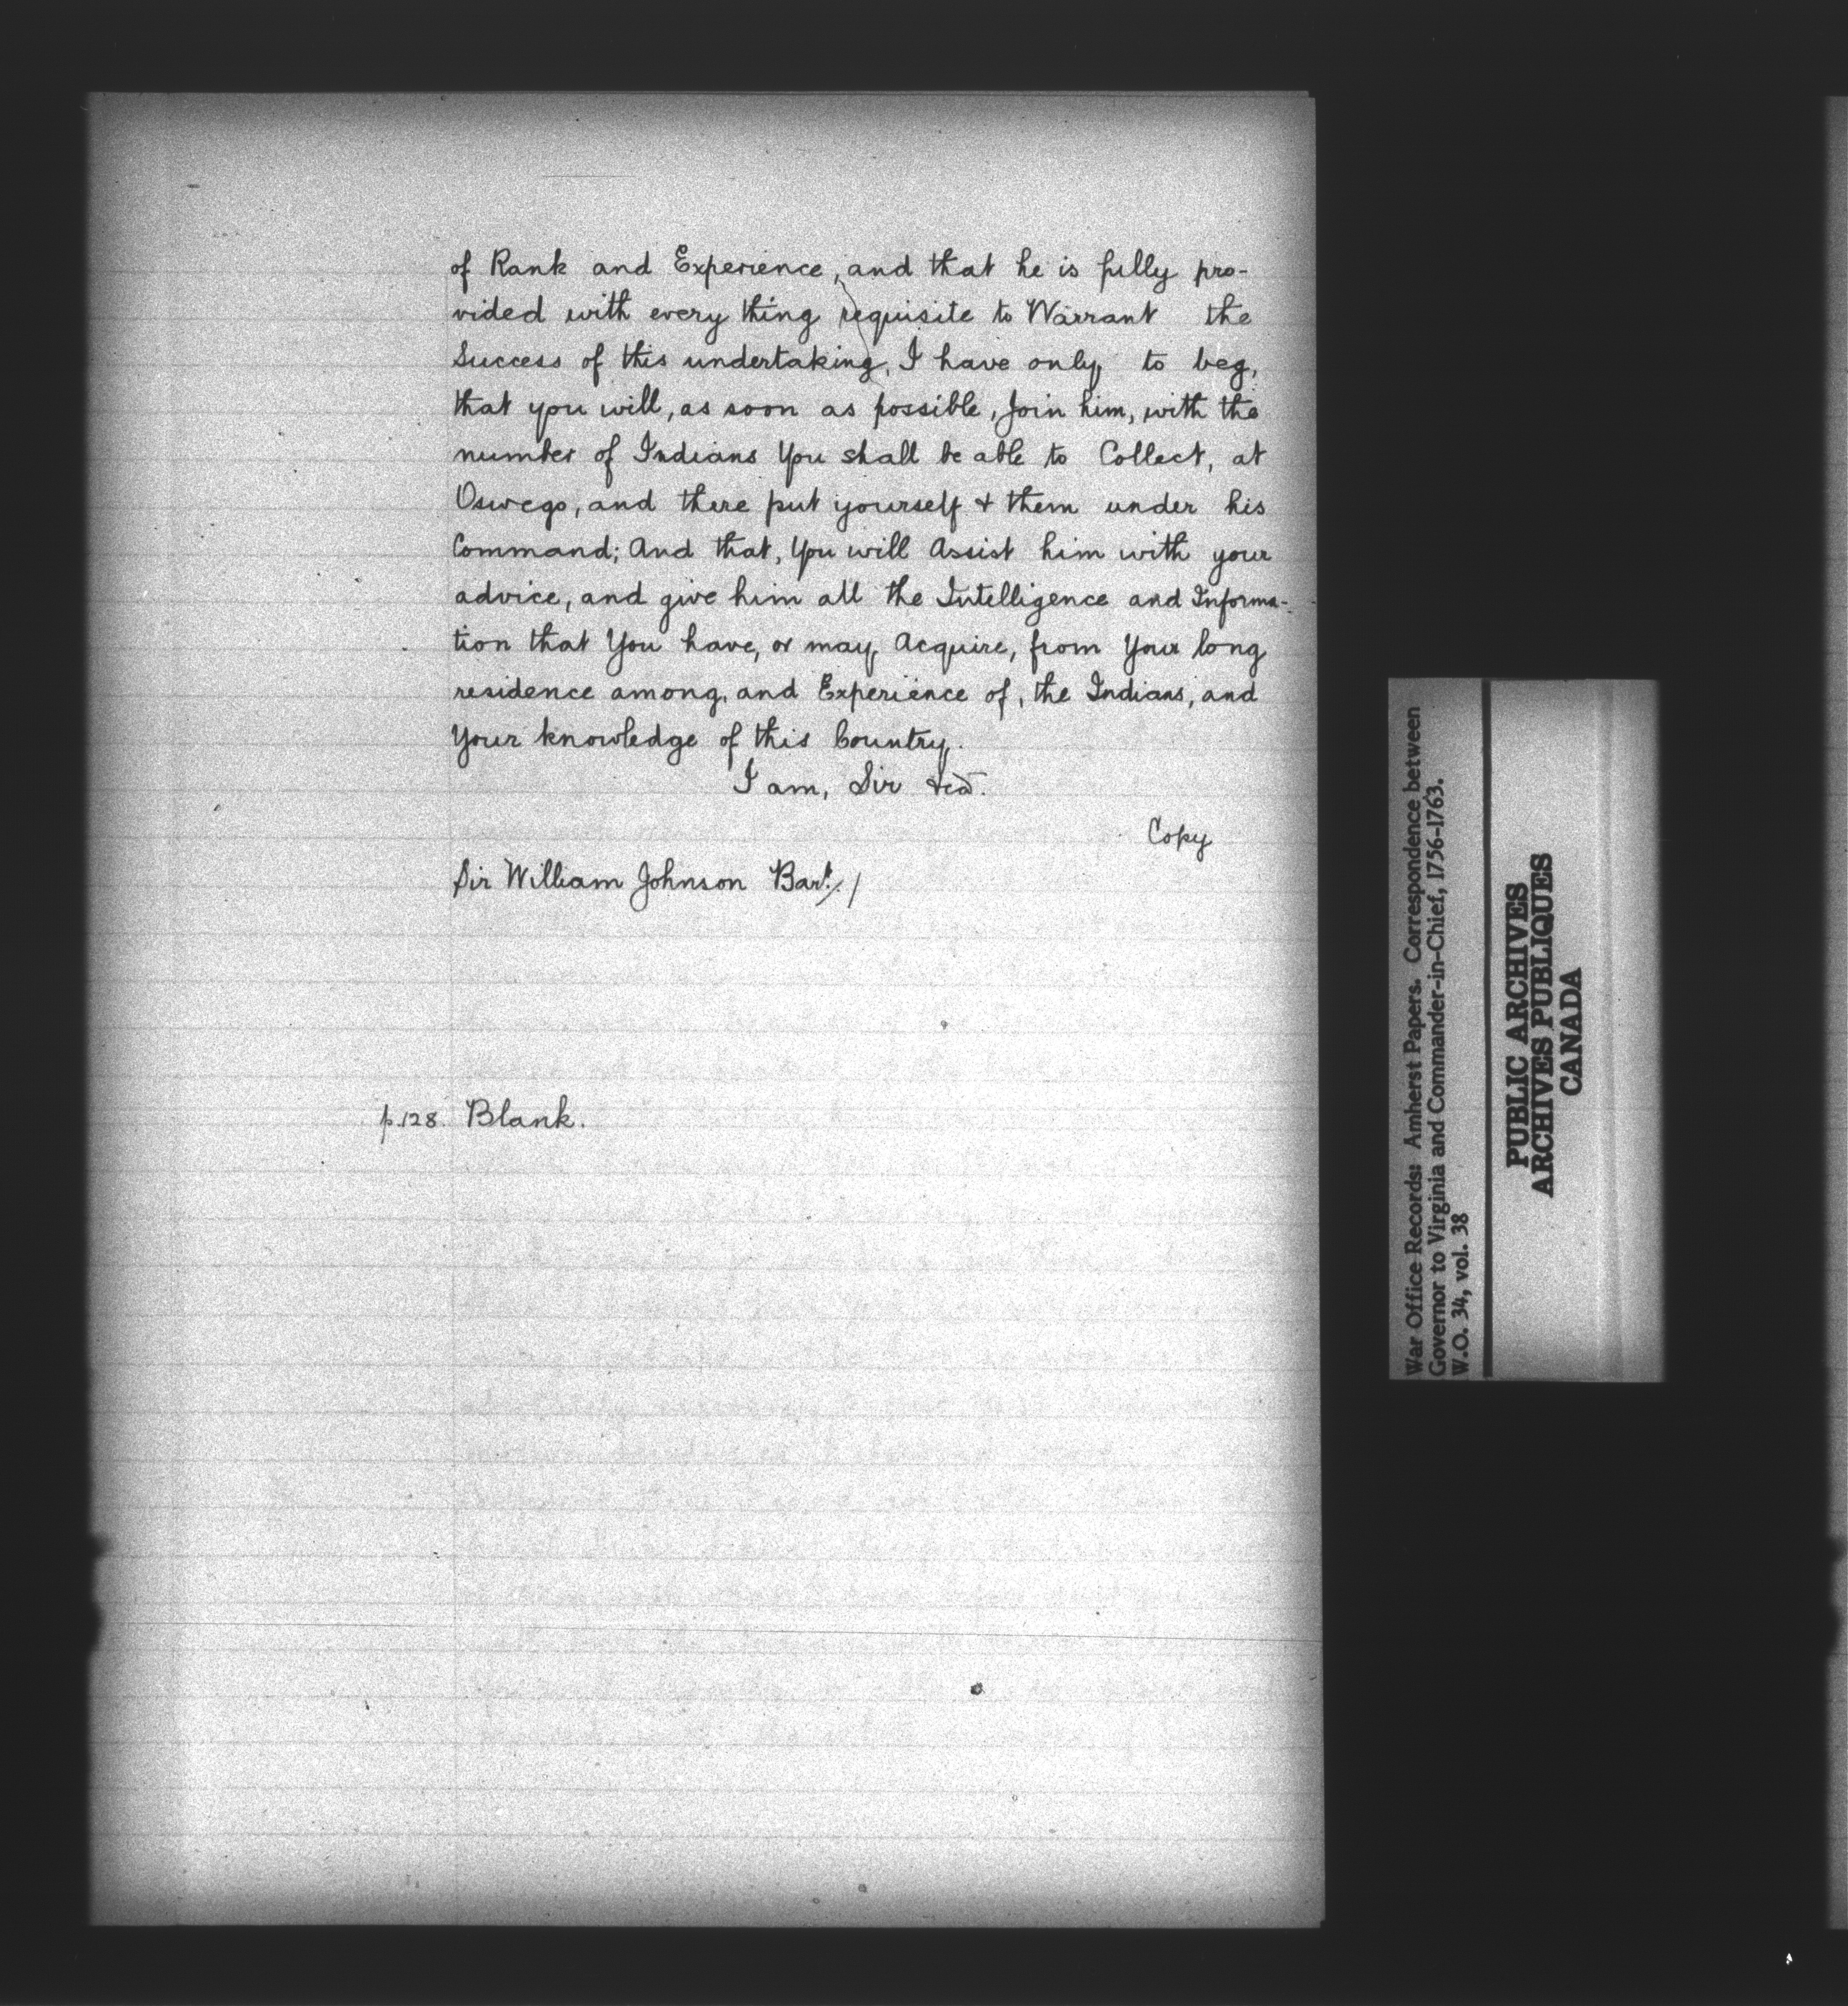 of Rank and Experience, and that he is fully pro-
vided with every thing requisite to Warrant the
Success of this undertaking, I have only, to beg,
that you will, as soon as possible, Join him, with the
number of Indians You shall be able to Collect, at
Oswego, and there put yourself & them under his
Command; And that, You will Assist him with your
advice, and give him all the Intelligence and Informa-
tion that You have, or may, Acquire, from Your long
residence among, and Experience of, the Indians, and
Your knowledge of this Country.
I am, Sir &ca.
Copy
Sir William Johnson Bart./. /
p.128. Blank.
War Office Records: Amherst Papers. Correspondence between
Governor to Virginia and Commander-in-Chief, 1756-1763.
W.O. 34, vol. 38
PUBLIC ARCHIVES
ARCHIVES PUBLIQUES
CANADA